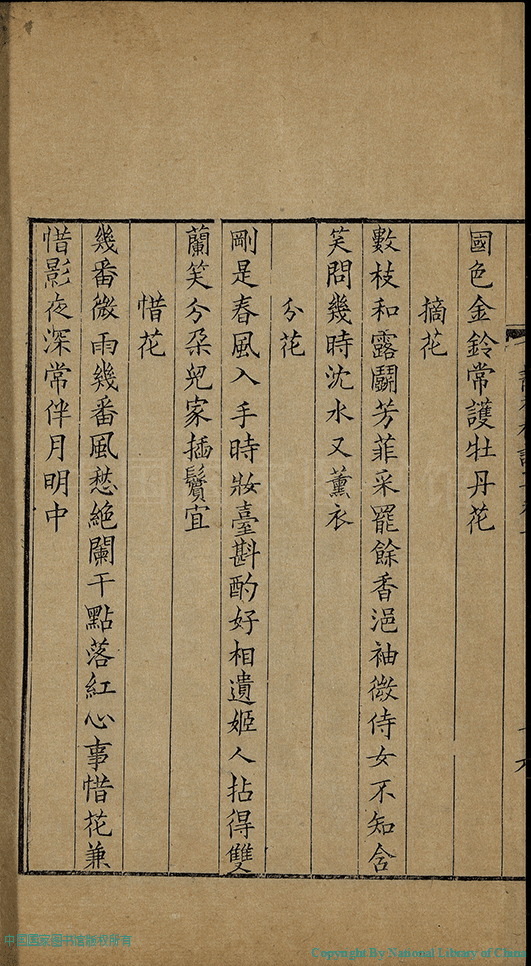 國色金鈴常護牡丹花
摘花
數枝和露鬭芳菲采罷餘香浥袖微侍女不知含
笑問幾時沈水又薰衣
分花
剛是春風入手時妝臺斟酌好相遺姬人拈得雙
蘭笑分朶兒家插鬢宜
惜花
幾番微雨幾番風愁絕闌干點落紅心事惜花兼
惜影夜深常伴月明中
中国国家图书馆版权所有
Copyright By National Library of China